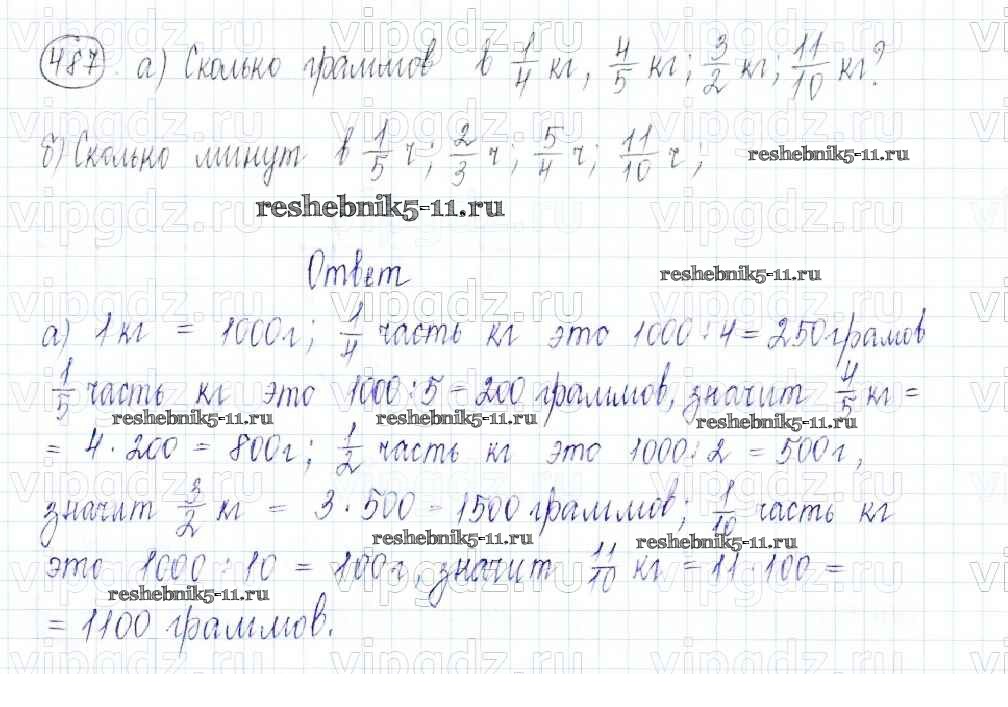 487 а) Сколько граммов в 1/4 кг, 4/5 кг; 3/2 кг; 11/10 кг?
б) Сколько минут в 1/5 ч; 2/3 ч; 5/4 ч; 11/10 ч;
reshebnik5-11.ru
reshebnik5-11.ru
Ответ
reshebnik5-11.ru
а) 1 кг = 1000 г; 1/4 часть кг это 1000 : 4 = 250 грамов
1/5 часть кг это 1000 : 5 = 200 граммов, значит 4/5 кг =
reshebnik5-11.ru reshebnik5-11.ru reshebnik5-11.ru
= 4 · 200 = 800 г; 1/2 часть кг это 1000 : 2 = 500 г,
значит 3/2 кг = 3 · 500 = 1500 граммов; 1/10 часть кг
reshebnik5-11.ru reshebnik5-11.ru
это 1000 : 10 = 100 г, значит 11/10 кг = 11 · 100 =
reshebnik5-11.ru
= 1100 граммов.
vipgdz.ru vipgdz.ru vipgdz.ru vipgdz.ru